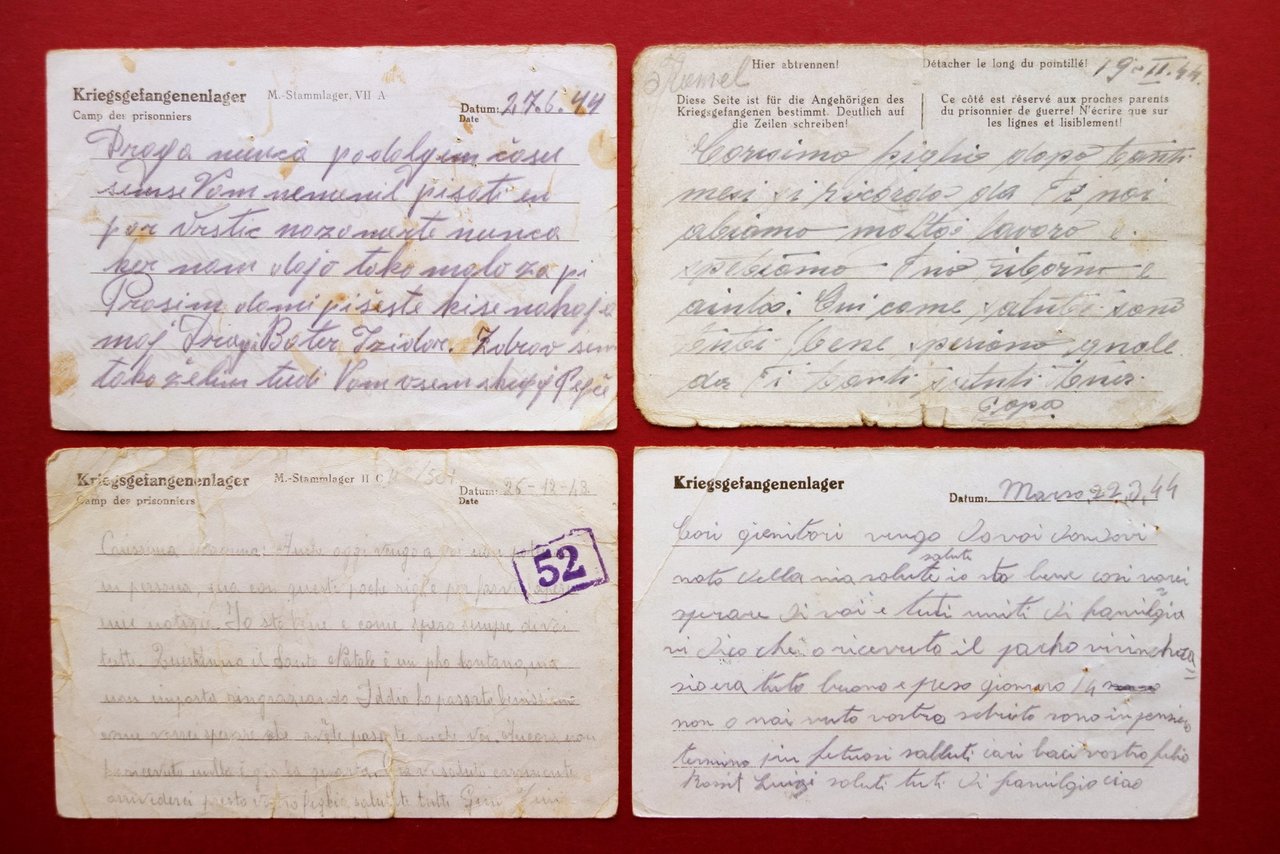 Kriegsgefangenenlager M.-Stammlager, VII A
Camp des prisonniers
Datum: 27.6.44
Date
Draga nunca po dolgem času
smse Vam nemenil pisati en
par vrstic nazanarte nunca
ker nam dajo tako malo za pi
Prosim da mi pišeste kise nahaja
moj Dragi Bater Izidor. Zdrav sem
tako želim tudi Vam vsem skupaj Pepče
Hier abtrennen! Détacher le long du pointillé! 19-II-44
Diese Seite ist für die Angehörigen des
Kriegsgefangenen bestimmt. Deutlich auf
die Zeilen schreiben!
Ce côté est réservé aux proches parents
du prisonnier de guerre! N'écrire que sur
les lignes et lisiblement!
Carisimo figlio dopo tanti
mesi si ricordo da Ti, noi
abiamo molto lavoro e
spetiamo Tuo ritorno e
aiuto. Qui come saluti sono
tuti bene speriamo quale
da Ti tanti saluti tuo
Papa
Kriegsgefangenenlager M.-Stammlager II C
Camp des prisonniers
Datum: 26-12-43
Date
52
Carissima Mamma: Anche oggi vengo a voi non
in persona, ma con queste poche righe per farvi
mie notizie. Io sto bene e come spero sempre di voi
tutti. Quest'anno il Santo Natale è un pho lontano, ma
non importa ringraziando Iddio lo passato benissimo
come vorrei sperare che avete passato anche voi. Ancora non
ho ricevuto nulla e già la nuova. Cari saluto caramente
arrivederci presto vostro figlio salutate tutti
Kriegsgefangenenlager
Datum: Marso, 22, 3, 44
Cari gienitori vengo da voi dandovi
salute
nota della mia salute io sto bene cosi vorei
sperare di voi e tuti uniti di familgia
vi dico che o ricevuto il pacho
sioera tuto buono e peso 14
non o mai vuto vostro scrito sono in pensiero
termino fetuosi salluti cari baci vostro filio
Luigi saluti tuti di familgia ciao